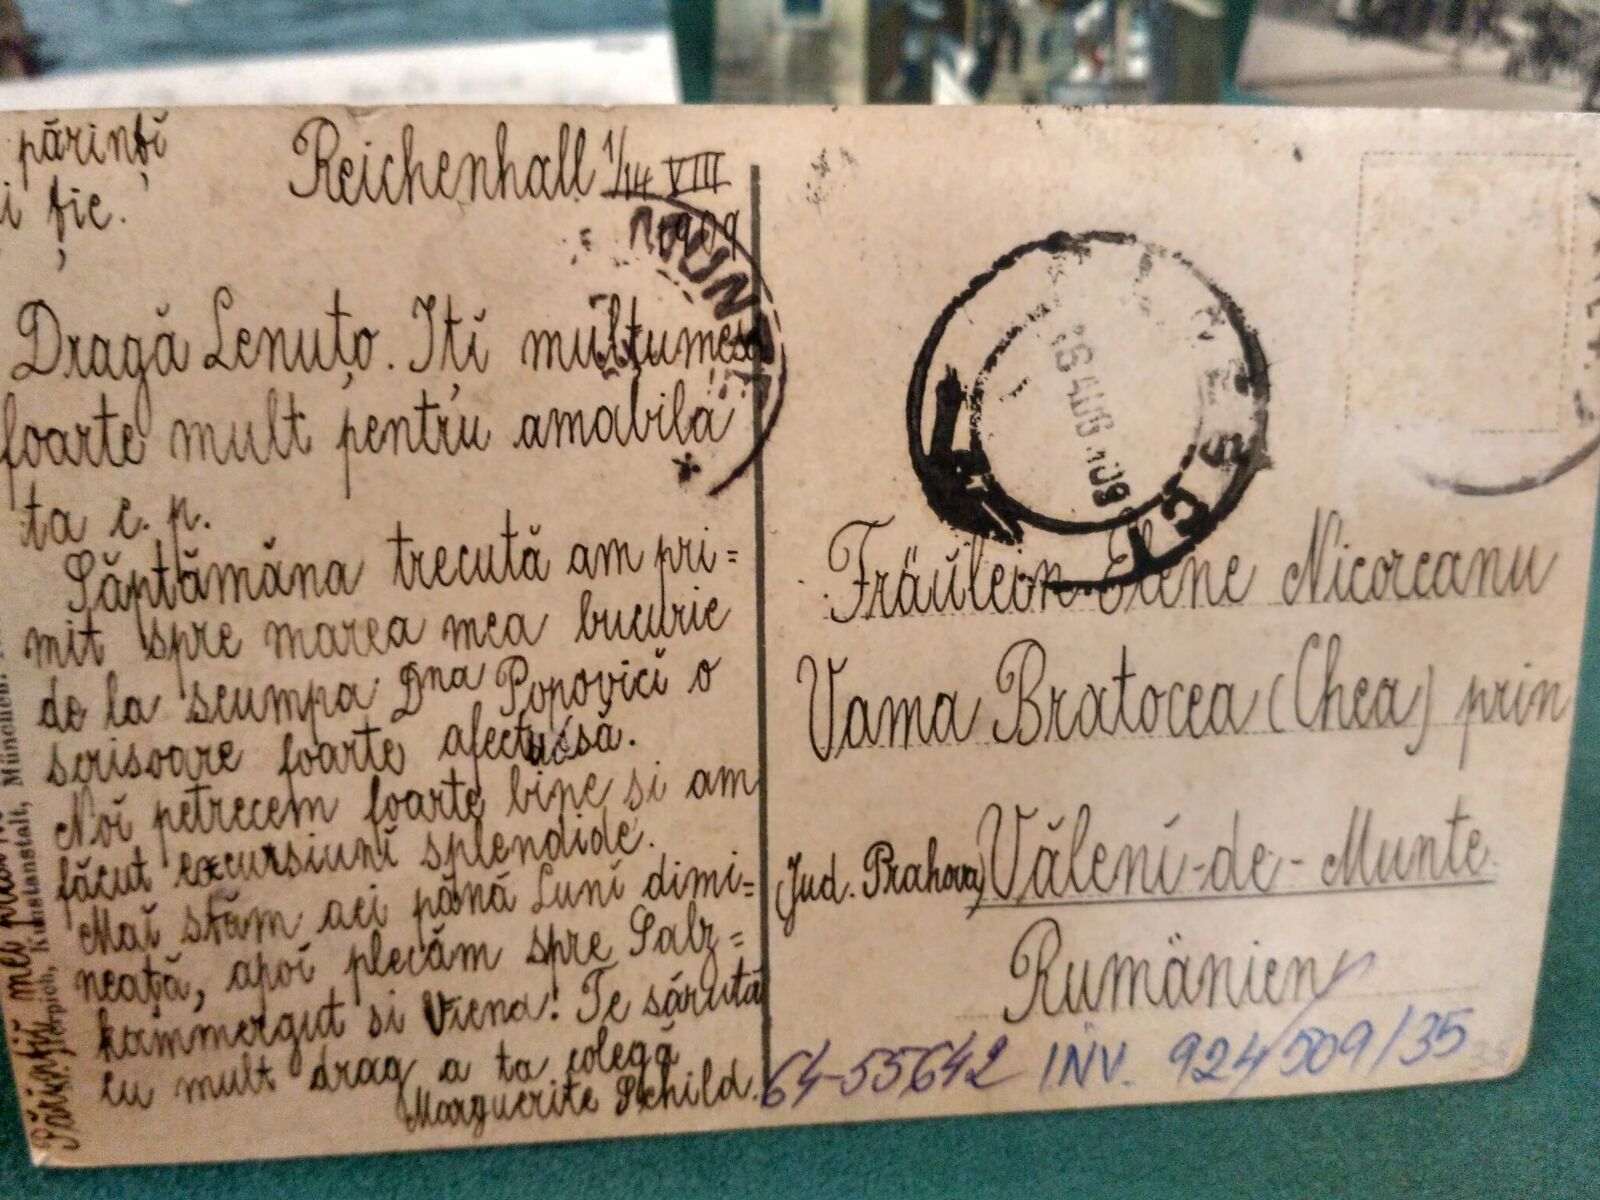 părinți
fie.
Reichenhall 1/14 VIII
1909
Dragă Lenuțo. Iti mulțumesc
foarte mult pentru amabila
ta c. p.
Săptămâna trecută am pri=
mit spre marea mea bucurie
de la scumpa Dna Popovici o
scrisoare foarte afectuosă.
Noĭ petrecem foarte bine si am
făcut excursiunĭ splendide.
Maĭ stăm aci până Lunĭ dimi=
neață, apoĭ plecăm spre Salz=
kammergut si Viena. Te sărută
cu mult drag a ta colegă
Marguerite Schild.
Părințiĭ meĭ
Kunstanstalt, München.
MÜN
16 AUG 909
Fräulein Elene Nicoreanu
Vama Bratocea (Chea) prin
(Jud. Prahova) Vălenĭ-de-Munte.
Rumänien
64-55642 INV. 924/509/35